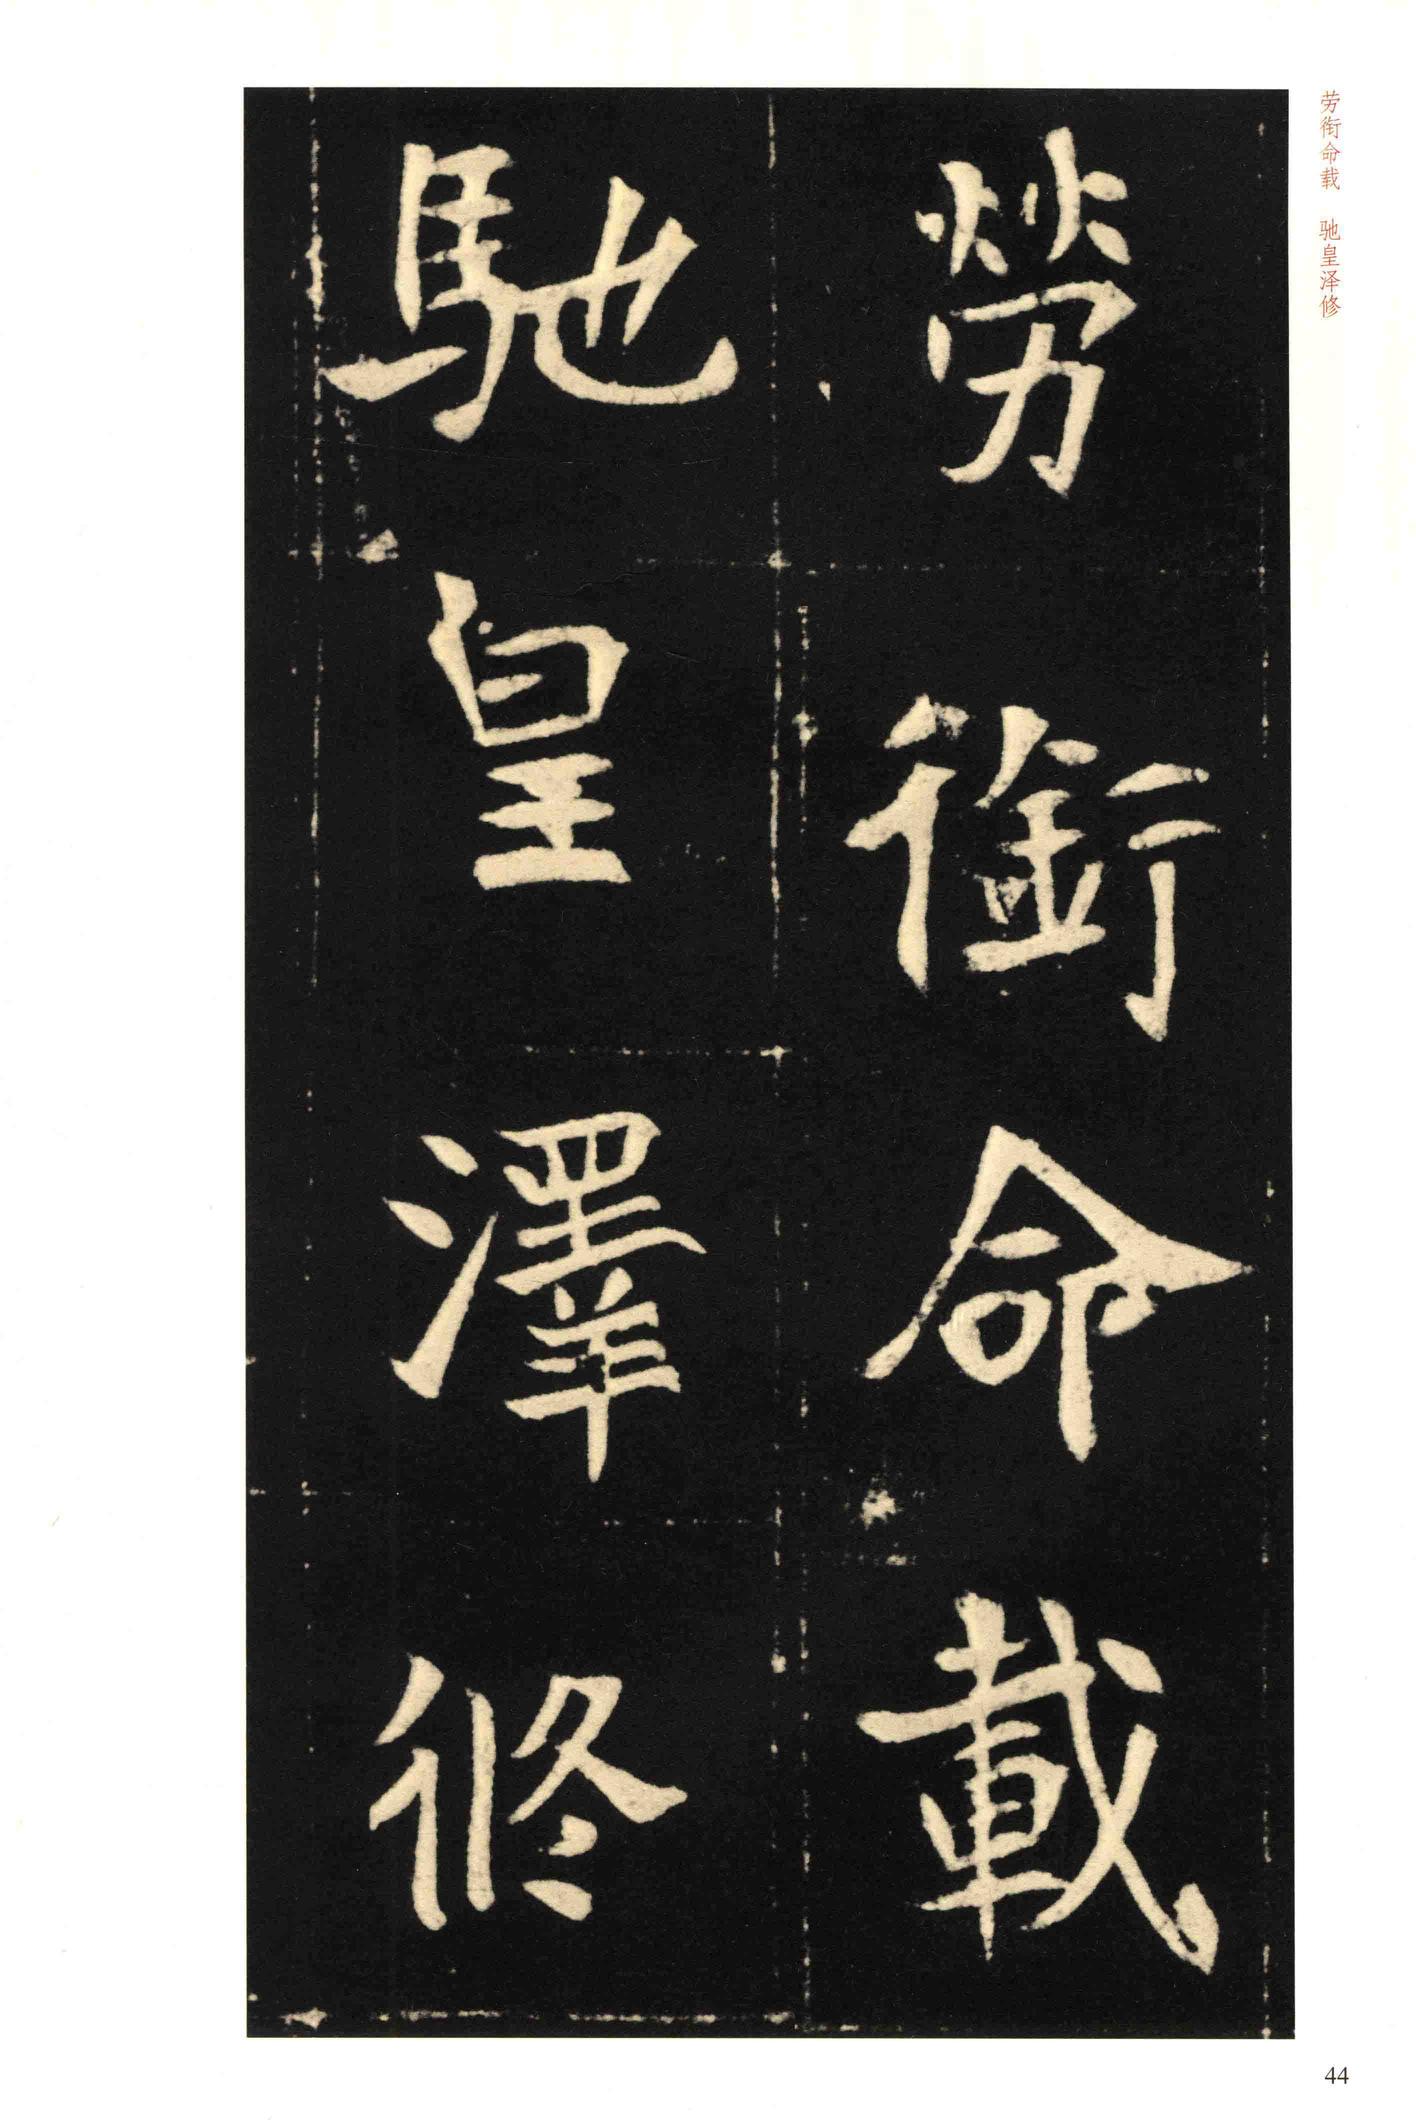 劳衔命载 驰皇泽修
勞銜命載
馳皇澤修
44